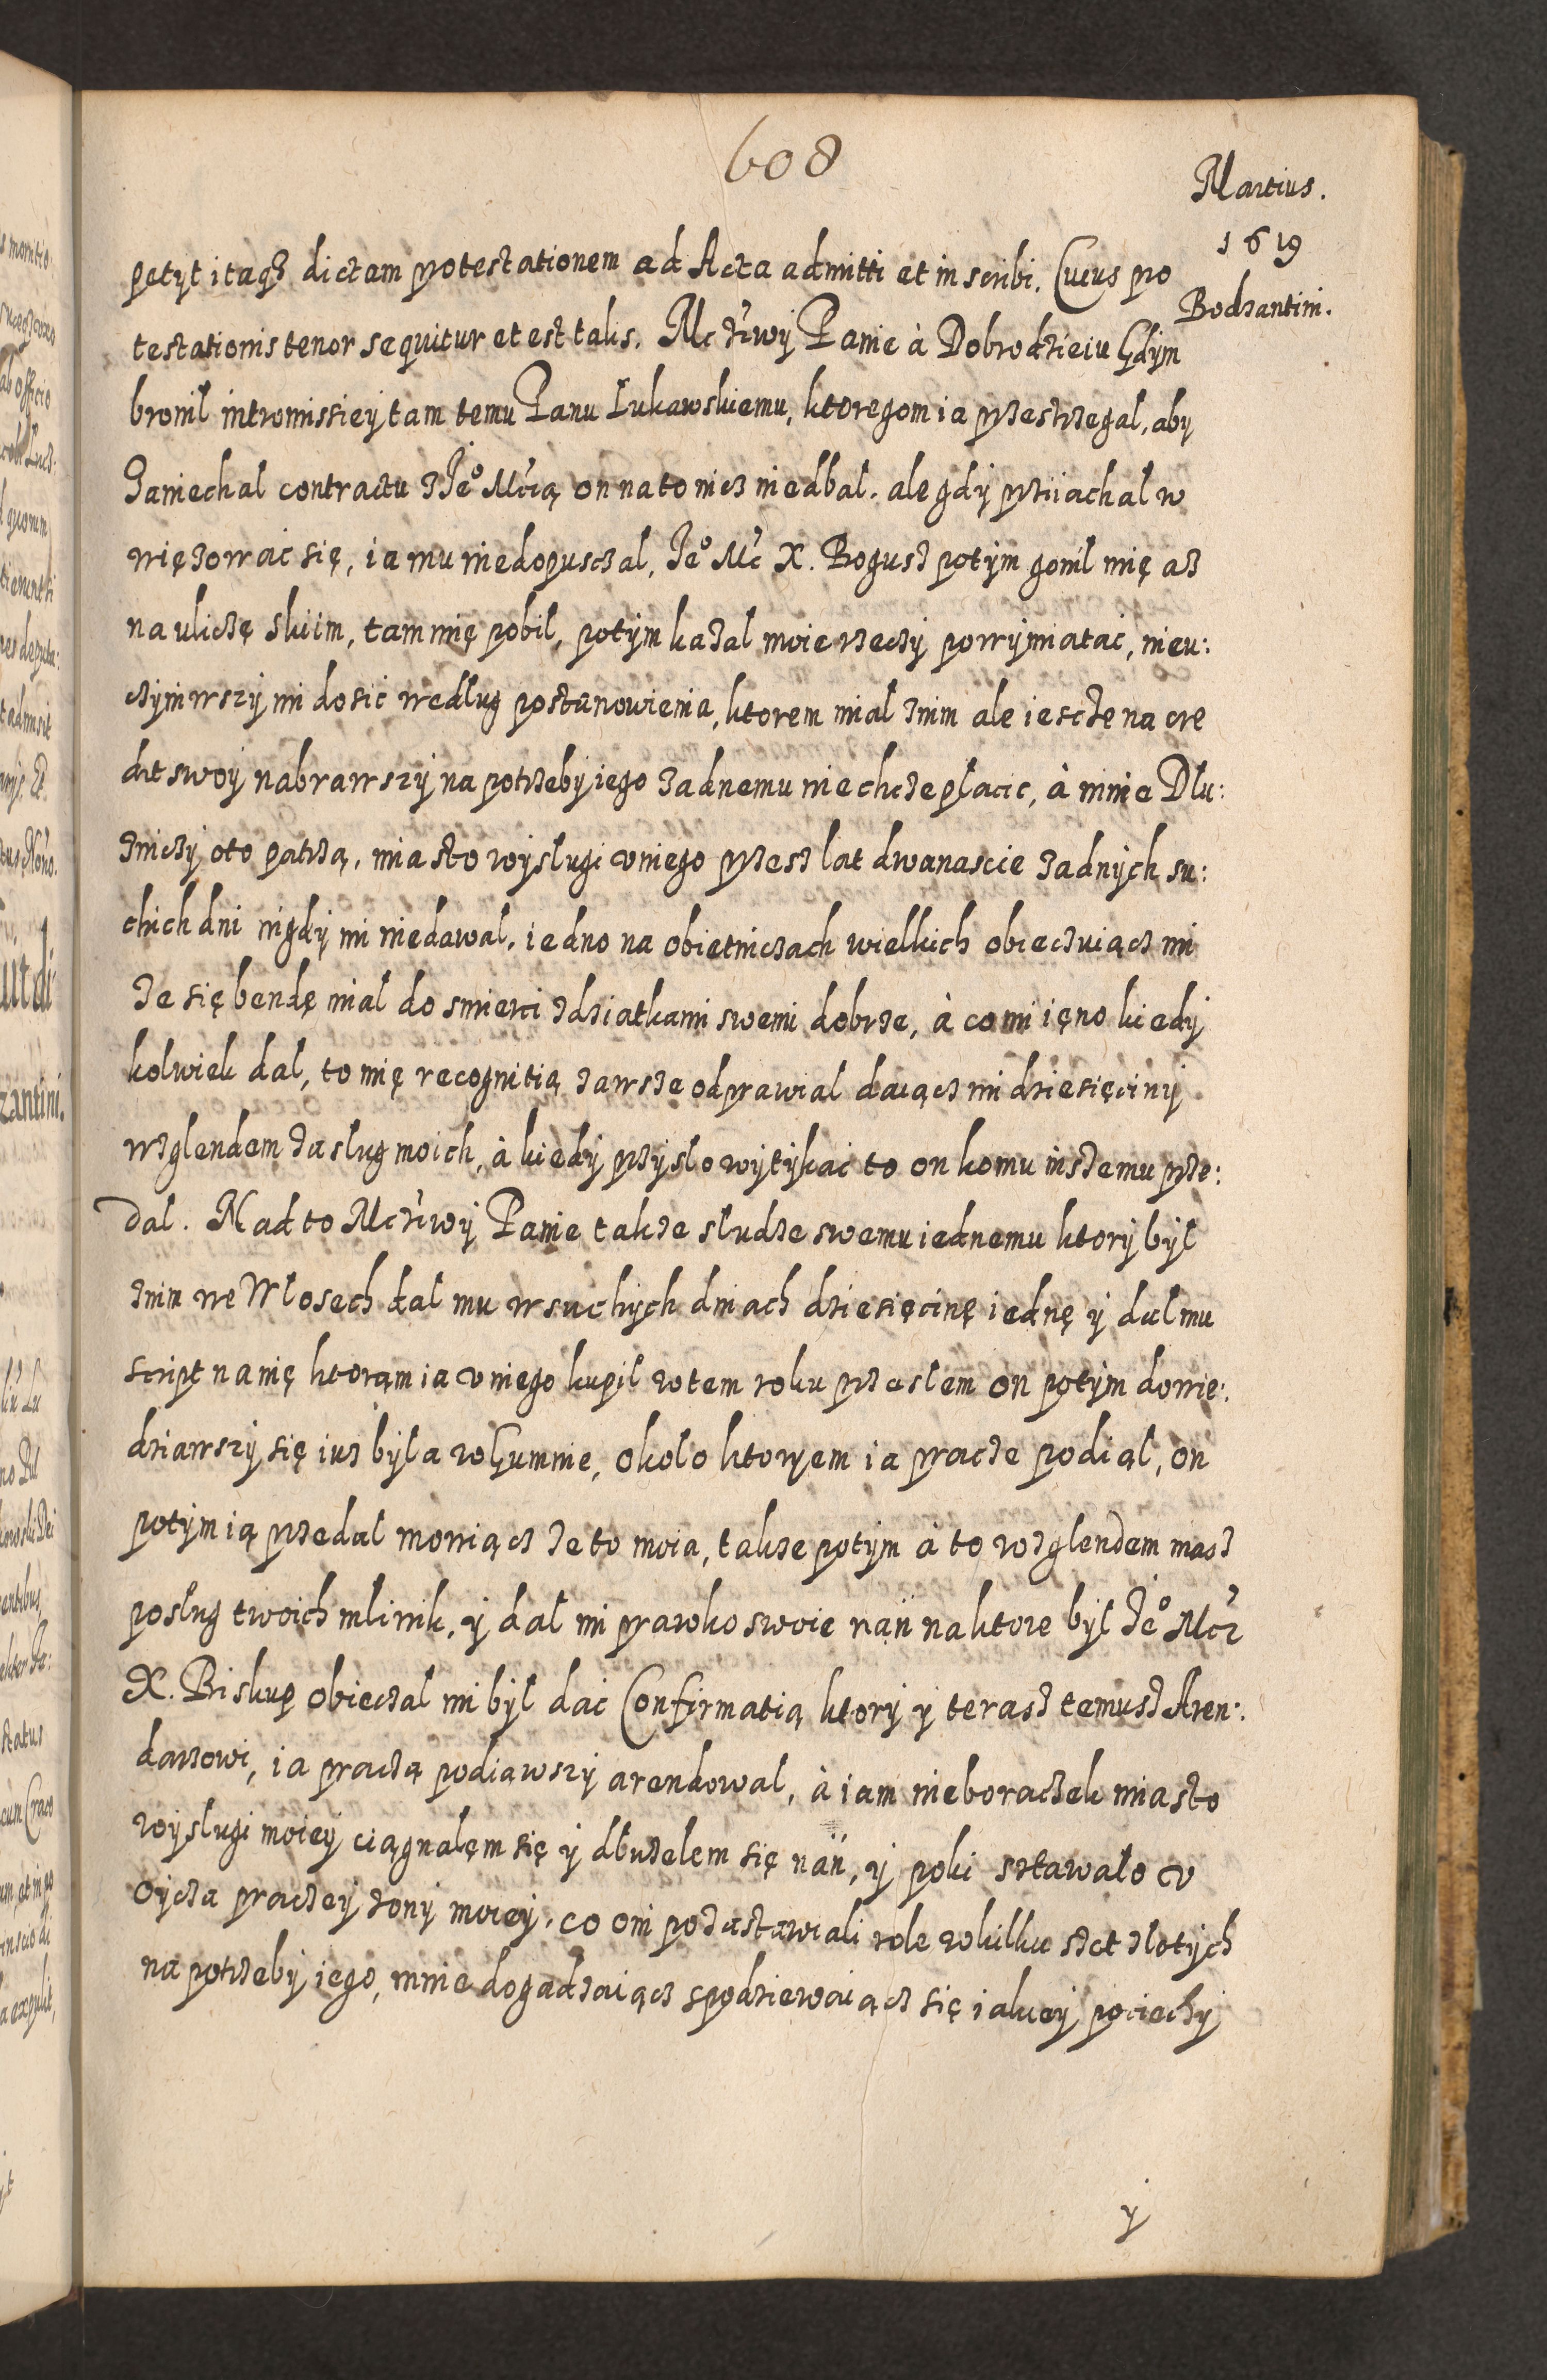 608
Martius.
1619
Bodzantini.
petyt itaq3 dictam protestationem ad Acta admitti et inscribi. Cuius pro
testationis tenor sequitur et est talis. Mczłwy Panie à Dobrodzieiu Gdym
bronil intromissiey tam temu Panu Łukawskiemu, ktoregom ia przestrzegal, aby
zaniechal contractu z Je° Mczią on na to nicz niedbal. ale gdy przijachal w
więzowac się, ia mu niedopusczal, Je° Mc X. Bogusz potym gonil mię az
na uliczę skiim, tam mię pobil, potym kazal moie rzeczy powymiatac, nieu:
czyniwszy mi dosic wedlug postanowienia, ktorem mial znim ale iescze na cre
dit swoy nabrawszy na potrzeby iego zadnemu niechcze placic, à mnie Dlu:
zniczy oto patrzą. miasto wyslugi v niego przesz lat dwanascie zadnych su:
chich dni nigdy mi niedawal. iedno na obietniczach wielkich obieczuiącz mi
ze się bendę mial do smierci zdziatkami swemi dobrze, à co mi ięno kiedy
kolwiek dal, to mię recognitią zawsze odprawial daiącz mi dziesięciny
wzglendem zaslug moich, à kiedy przyslo wytykac to on komu inszemu prze:
dal. Nad to Mczłwy Panie takze sludze swemu iednemu ktory byl
znim we Wlosech dal mu w suchych dniach dziesięcinę iednę y dal mu
script na nię ktorąm ia v niego kupil wtem roku przeslem on potym dowie:
dziawszy się iuz byla w Gumnie, okolo ktoryem ia pracze podial, on
potym ią przedal mowiącz ze to moia, takze potym à to wzglendem masz
poslug twoich mlinik, y dal mi prawko swoie nań na ktore byl Je° Mcz
X. Biskup obieczal mi byl dac Confirmatią ktory y terasz temusz Aren:
darzowi, ia praczą podiąwszy arendowal, à iam nieboraczek miasto
wyslugi moiey ciągnalęm się y dluzelem się nań, y poki sztawalo v
oycza praczey zony moiey, co oni pozastawiali role w kilku szet zlotych
na potrzeby iego, mnie dogadzaiącz spodziewaiącz się iakiey pociechy
y